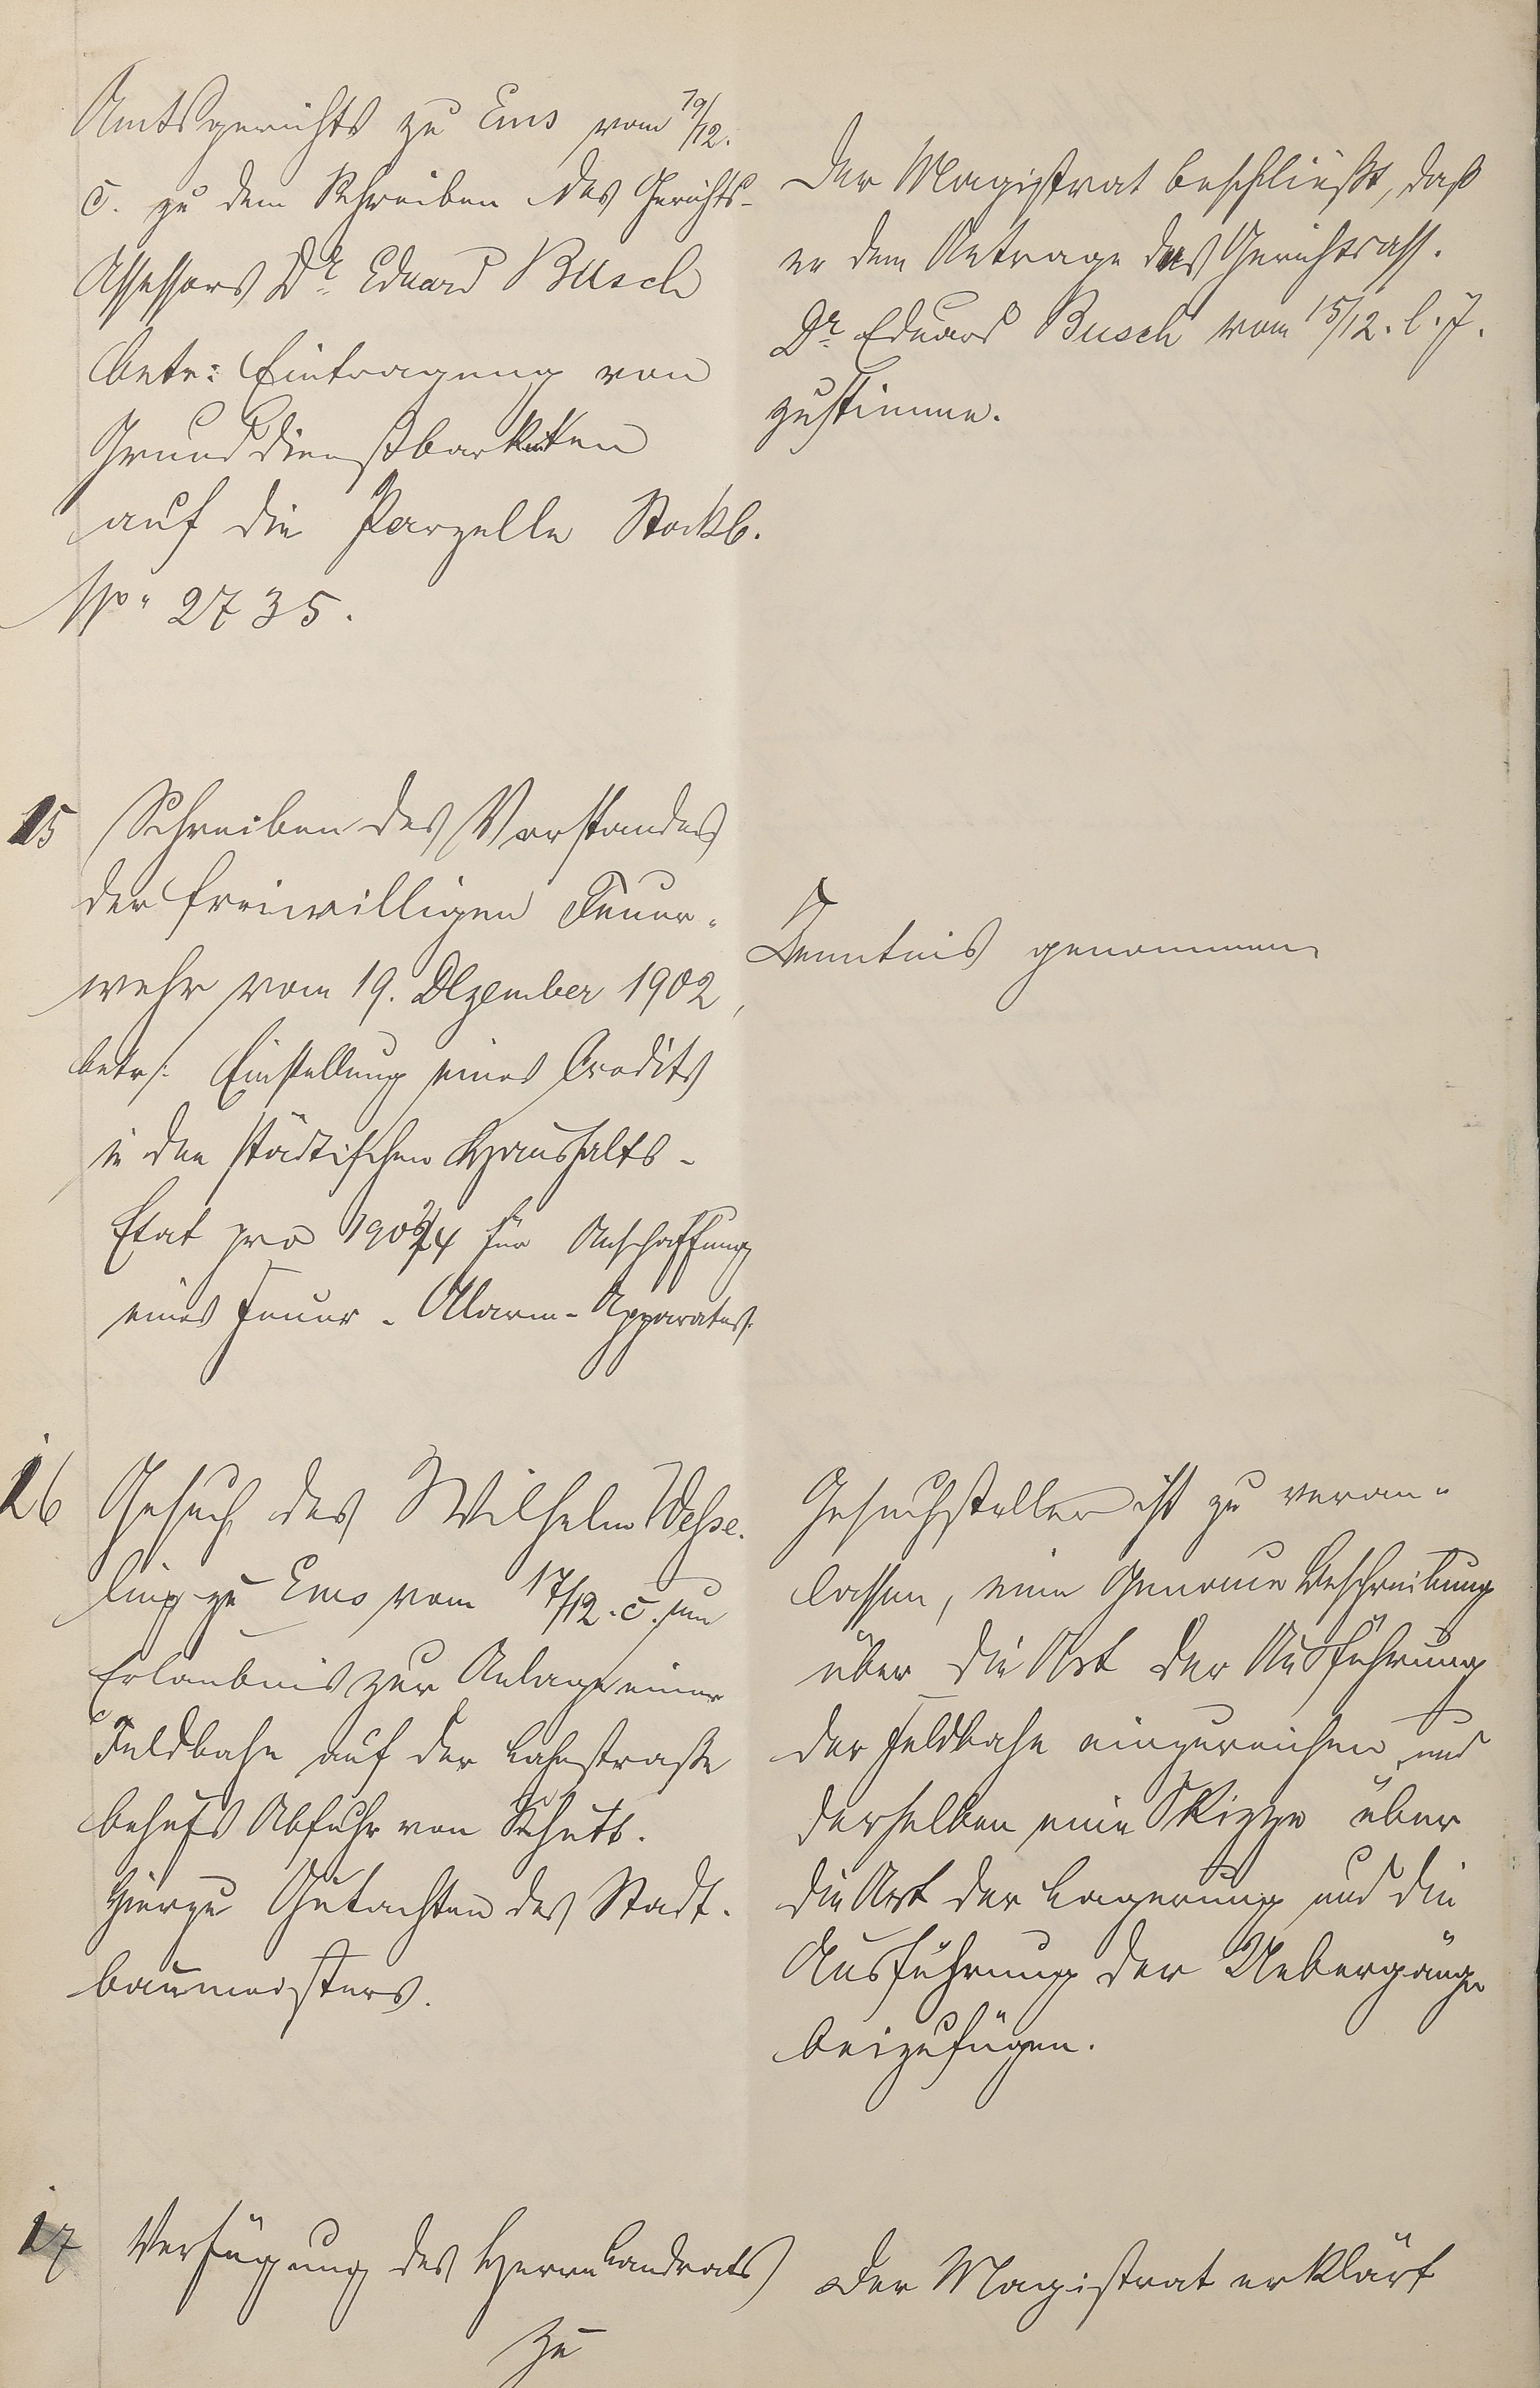 Amtsgerichts zu Ems vom 19/12.
c. zu dem Schreiben des Gerichts-
Assessors Dr. Eduard Busch
betr: Eintragung von
Grunddienstbarkeiten
auf die Parzelle Stockb.
No. 2735.
Der Magistrat beschließt, daß
er dem Antrage des Gerichtsass.
Dr. Eduard Busch vom 15/12. l. J.
zustimme.
15 Schreiben des Vorstandes
der freiwilligen Feuer-
wehr vom 19. Dezember 1902,
betr: Einstellung eines Credits
in den städtischen Haushalts-
Etat pro 1903/4 für Anschaffung
eines Feuer-Alarm-Apparates.
Kenntnis genommen
16 Gesuch des Wilhelm Wesse-
ling zu Ems vom 17/12. c. um
Erlaubnis zur Anlage einer
Feldbahn auf der Lahnstraße
behufs Abfuhr von Schutt.
Hierzu Gutachten des Stadt-
baumeisters.
Gesuchsteller ist zu veran-
lassen, eine genaue Beschreibung
über die Art der Ausführung
der Feldbahn einzureichen und
derselben eine Skizze über
die Art der Lagerung und die
Ausführung der Uebergänge
beizufügen.
17 Verfügung des Herrn Landrats
zu
Der Magistrat erklärt